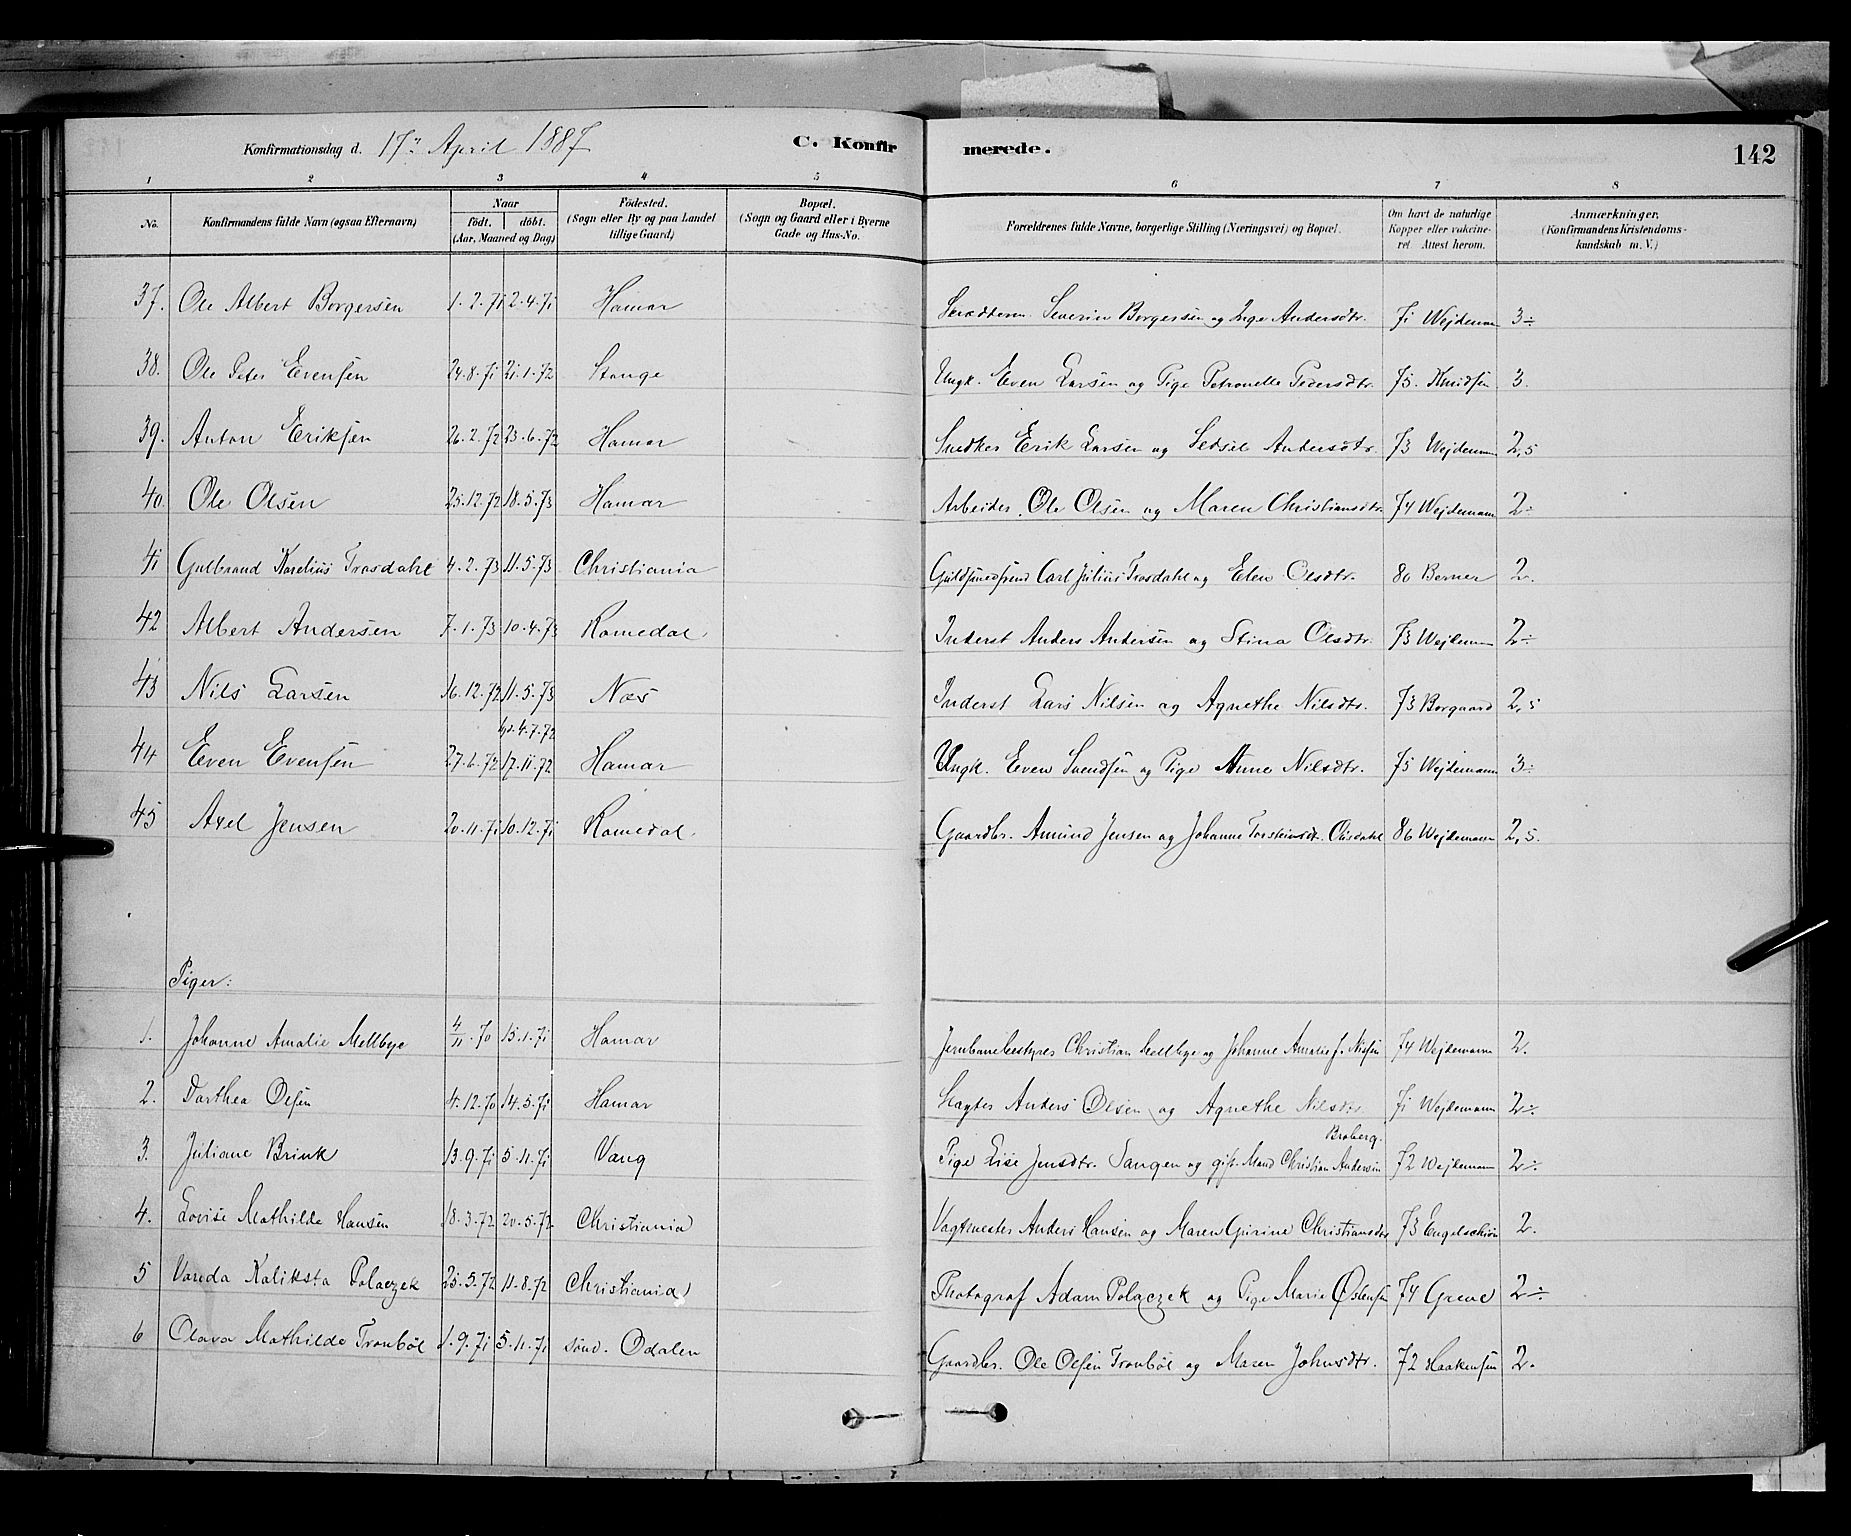 Konfirmationsdag d. 17de April 1887 C. Konfirmerede. 142
1 2 3 4 5 6 7 8
No. Konfirmandens fulde Navn (ogsaa Efternavn) Naar födt. döbt. (Aar, Maaned og Dag) Födested. (Sogn eller By og paa Landet tillige Gaard) Bopæl. (Sogn og Gaard eller i Byerne Gade og Hus-No. Forældrenes fulde Navne, borgerlige Stilling (Næringsvei) og Bopæl. Om havt de naturlige Kopper eller vaccineret. Attest herom. Anmærkninger. (Konfirmandens Kristendomskundskab m. V.)
37. Ole Albert Borgersen 1.2.71 2.4.71 Hamar Severin Borgersen og Inge Andersdtr. 71 Wejdemann 3÷
38. Ole Peter Evensen 24.8.71 21.1.72 Stange Ungk. Even Larsen og Pige Petronelle Pedersdtr. 75. Knudsen 3.
39. Anton Eriksen 26.2.72 23.6.72 Hamar Snedker Erik Larsen og Sedsel Andersdtr. 73 Wejdemann 2,5
40. Ole Olsen 25.12.72 18.5.73 Hamar Arbeider Ole Olsen og Maren Christiansdtr. 74 Wejdemann 2÷
41 Gulbrand Karelius Trosdahl 4.2.73 11.5.73 Christiania Guldsmedsvend Carl Julius Trosdahl og Elen Olsdtr. 80 Berner 2.
42 Albert Andersen 7.1.73 10.4.73 Romedal. Inderst Anders Andersen og Stina Olsdtr. 73 Wejdemann 2÷
43 Nils Larsen 16.12.72 11.5.73 Næs Inderst Lars Nilsen og Agnethe Nilsdtr. 73 Borgaard 2,5
4.7.72
44 Even Evensen 27.6.72 17.11.72 Hamar Ungk. Even Svendsen og Pige Anne Nilsdtr. 75 Wejdemann 3÷
45 Axel Jensen 20.11.71 10.12.71 Romedal. Gaardbr. Amund Jensen og Johanne Torsteinsdtr. 86 Wejdemann 2,5.
Piger:
1. Johanne Amalie Mellbye 4/11.70 15.1.71 Hamar Jernbanebestyrer Christian Mellbye og Johanne Amalie f. Nissen 74 Wejdemann 2.
2. Dorthea Olsen 4.12.70 14.5.71 Hamar Anders Olsen og Agnethe Nilsdtr. 71 Wejdemann 2÷
Broberg.
3. Juliane Brink 13.9.71 5.11.71 Vang Pige Lise Jensdtr. Tangen og gift Mand Christian Andersen 72 Wejdemann 2÷
4. Lovise Mathilde Hansen 18.3.72 20.5.72 Christiania Vagtmester Anders Hansen og Maren Gurine Christiansdtr 73 Engelschiøn 2.
5 Vanda Kaliksta Polaczek 25.5.72 11.8.72 Christiania Photograf Adam Polaczek og Pige Marie Østensen 74 Greve 2÷
6 Olava Mathilde Tronbøl 1.9.71 5.11.71 sønd. Odalen Gaardbr. Ole Olsen Tronbøl og Maren Johnsdtr. 72 Haakensen 2.